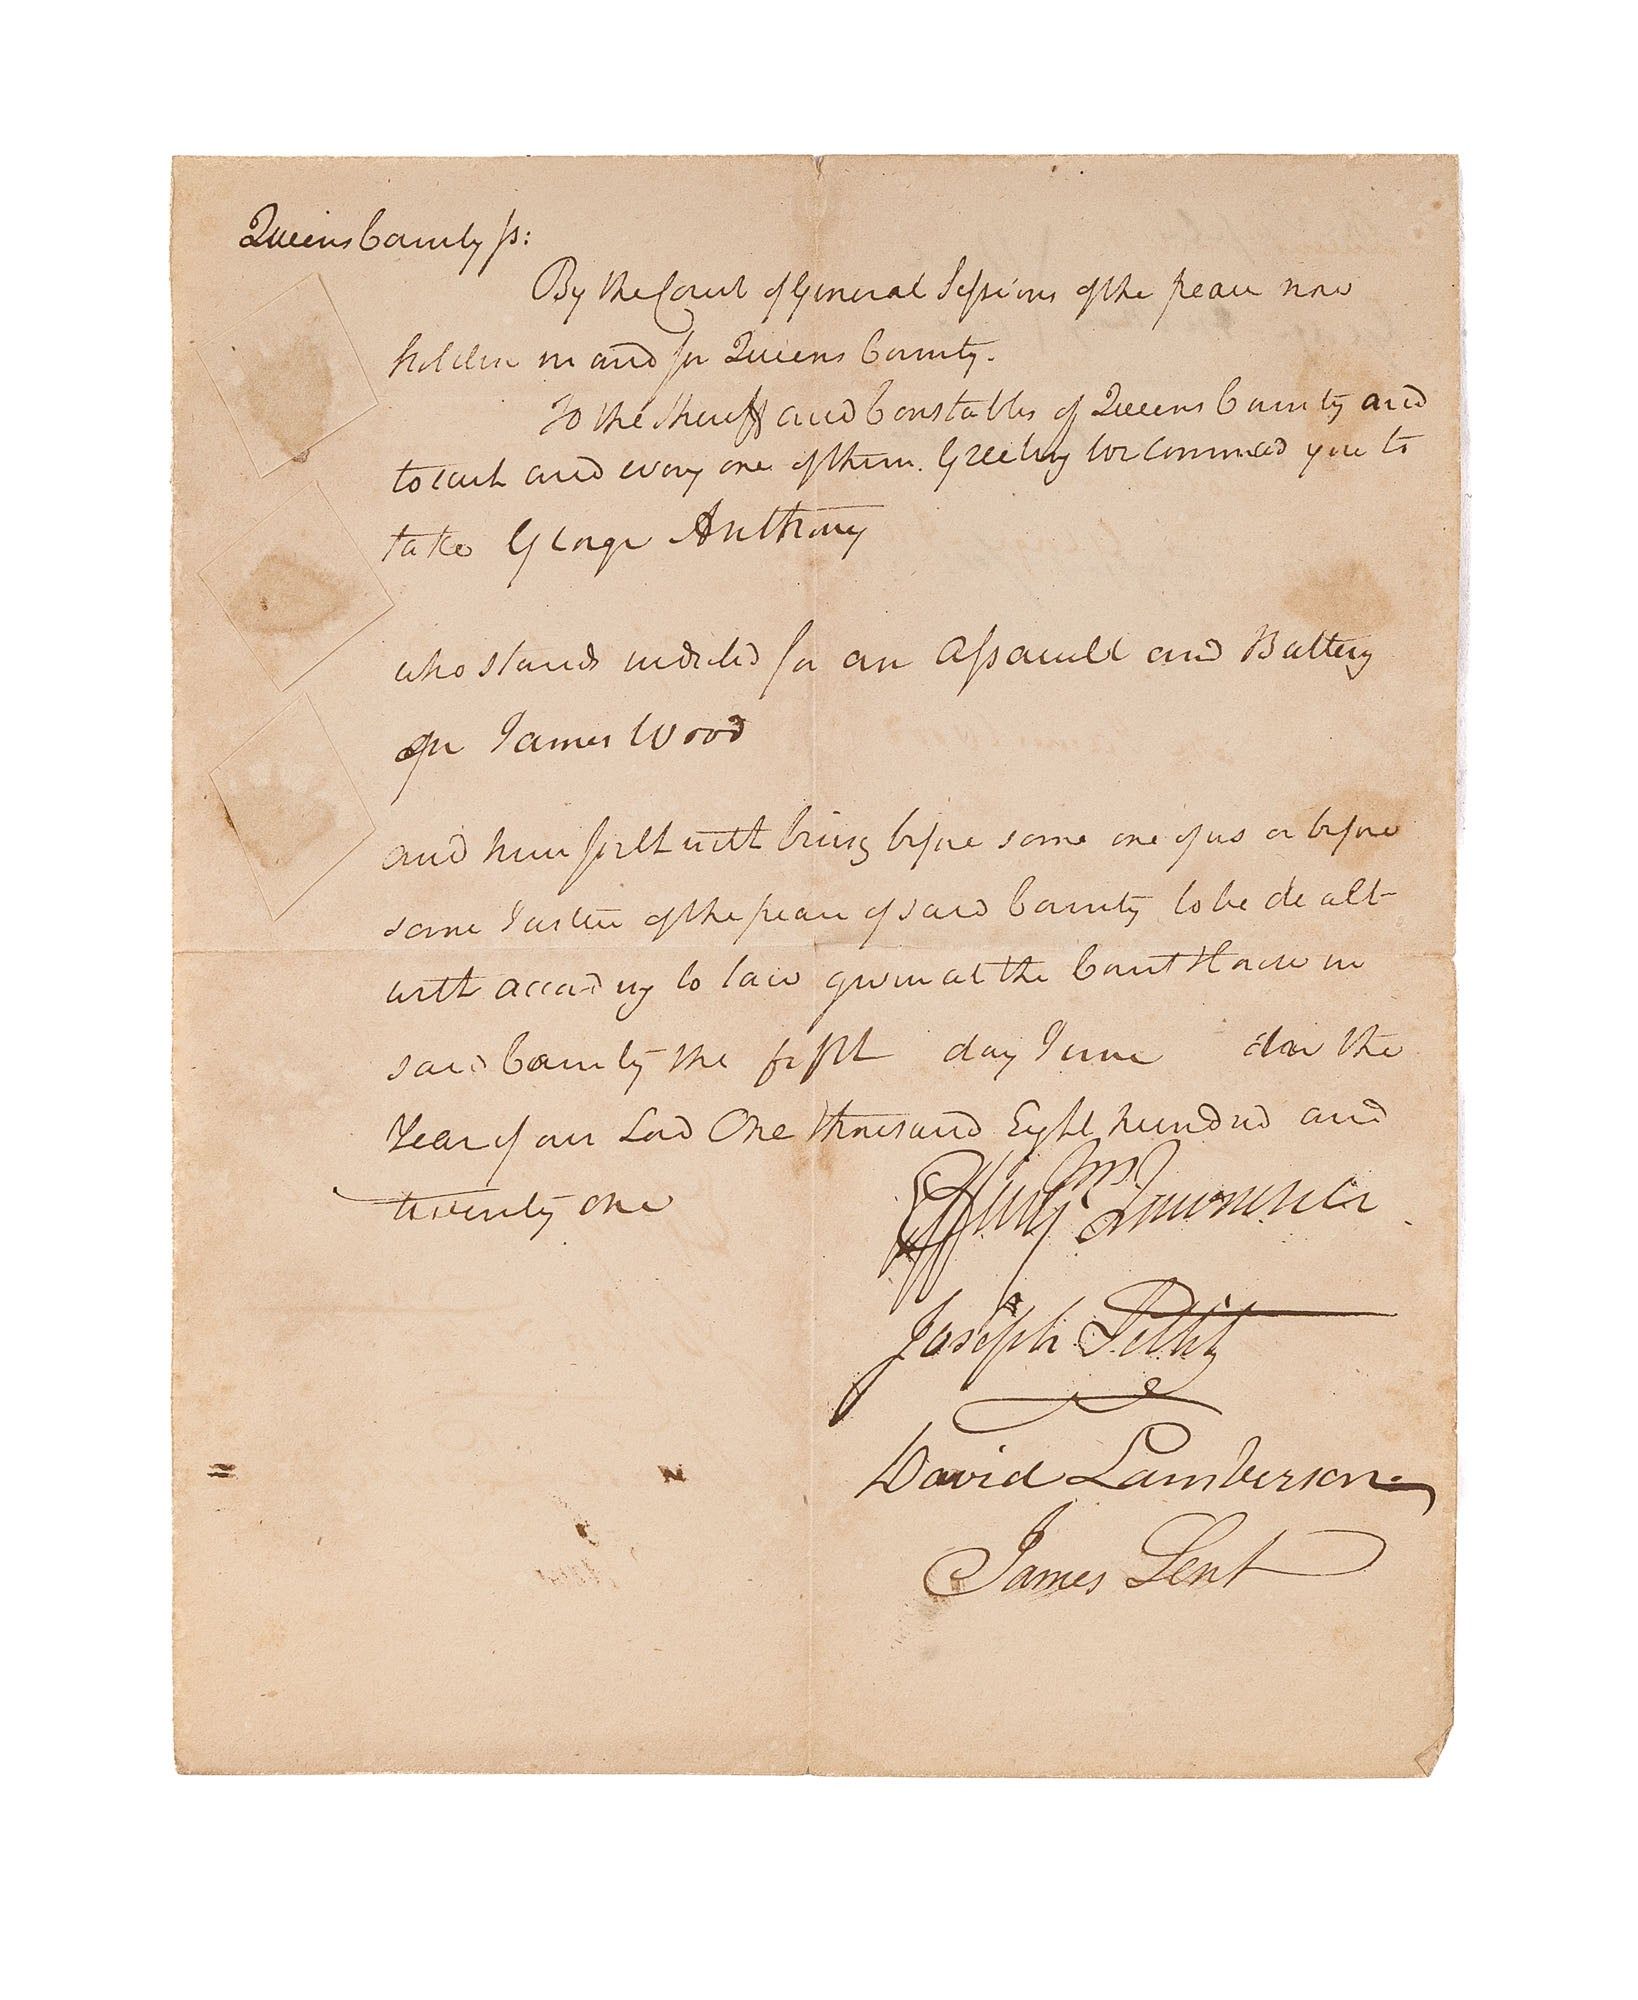 Queens County ss:
By the Court of General Sessions of the peace now
holden in and for Queens County.
To the Sheriff and Constables of Queens County and
to each and every one of them. Greeting We Command you to
take George Anthony
who stands indicted for an Assault and Battery
on James Wood
and him forth with bring before some one of us or before
some Justice of the peace of said County to be dealt
with according to law given at the Court House in
said County the day June in the
Year of our Lord One thousand Eight hundred and
twenty one
Effingm Lawrence
Joseph Pettit
David Lamberson
James Lent